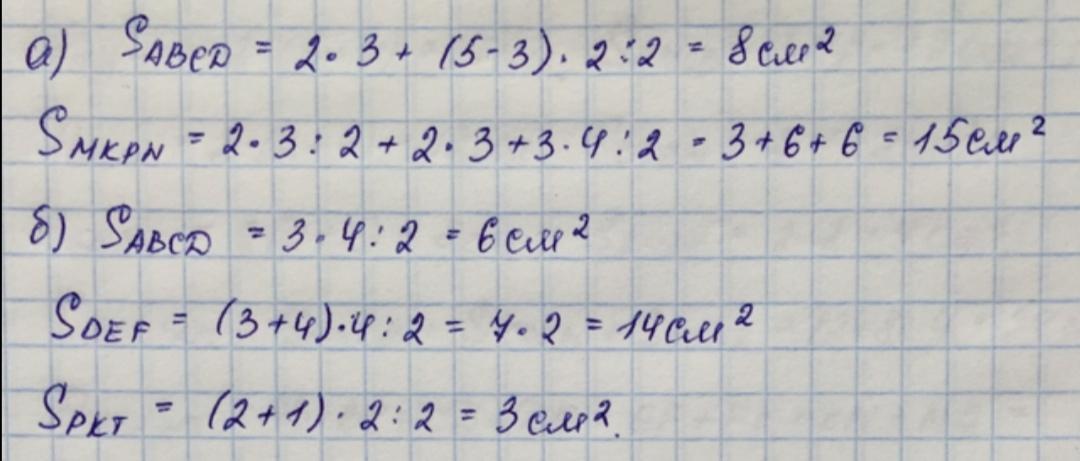 а) SABCD = 2·3 + (5-3)·2:2 = 8см²
SMKPN = 2·3:2 + 2·3 + 3·4:2 = 3+6+6 = 15см²
б) SABCD = 3·4:2 = 6см²
SDEF = (3+4)·4:2 = 7·2 = 14см²
SPKT = (2+1)·2:2 = 3см².